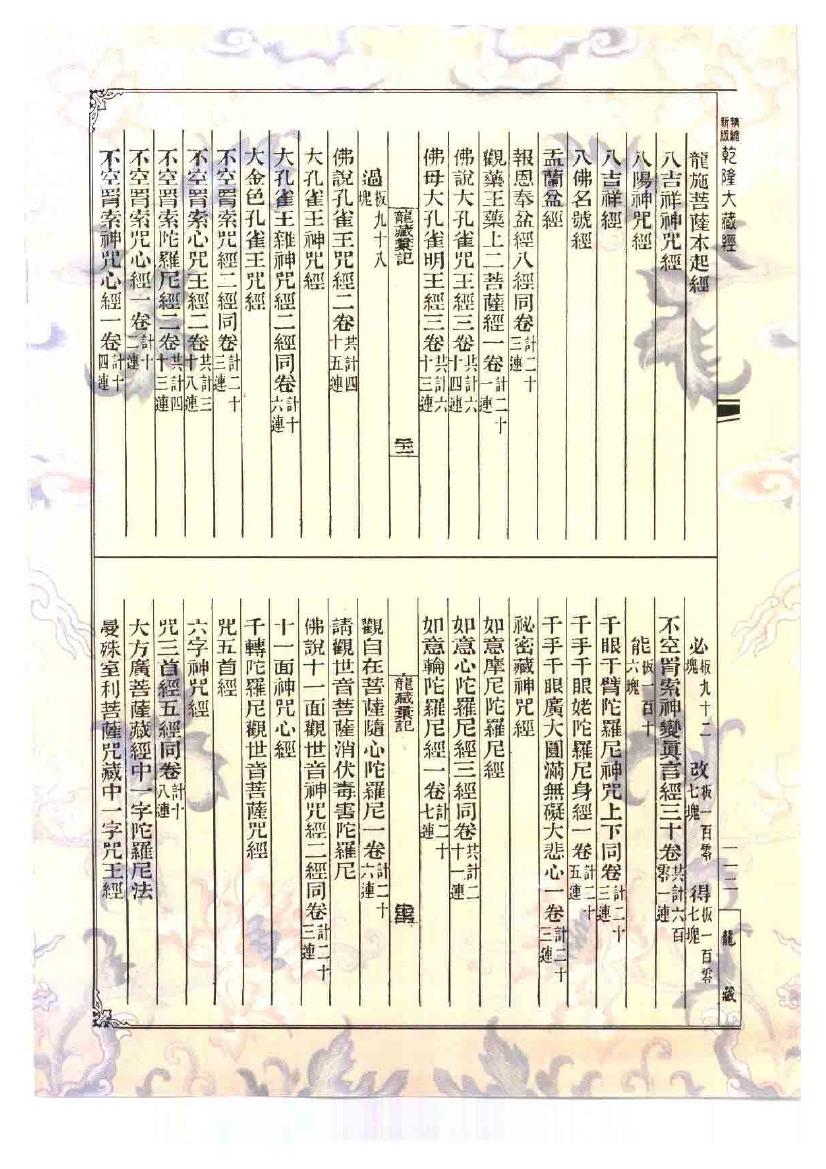 新版精縮乾隆大藏經
龍施菩薩本起經
八吉祥神咒經
八陽神咒經
八吉祥經
八佛名號經
盂蘭盆經
報恩奉盆經八經同卷計二十三連
觀藥王藥上二菩薩經一卷計二十一連
佛說大孔雀咒王經三卷共計六十四連
佛母大孔雀明王經三卷共計六十三連
龍藏彙記
過板九十八塊
佛說孔雀王咒經二卷共計四十五連
大孔雀王神咒經
大孔雀王雜神咒經二經同卷計十六連
大金色孔雀王咒經
不空罥索咒經二經同卷計二十三連
不空罥索心咒王經二卷共計三十八連
不空罥索陀羅尼經二卷共計四十三連
不空罥索咒心經一卷計十二連
不空罥索神咒心經一卷計十四連
必板九十二塊 改板一百零七塊 得板一百零七塊
不空罥索神變眞言經三十卷共計六百零一連
能板一百十六塊
千眼千臂陀羅尼神咒上下同卷計二十三連
千手千眼姥陀羅尼身經一卷計二十五連
千手千眼廣大圓滿無礙大悲心一卷計二十三連
祕密藏神咒經
如意摩尼陀羅尼經
如意心陀羅尼經三經同卷共計二十一連
如意輪陀羅尼經一卷計二十七連
龍藏彙記
觀自在菩薩隨心陀羅尼一卷計二十六連
請觀世音菩薩消伏毒害陀羅尼
佛說十一面觀世音神咒經二經同卷計二十三連
十一面神咒心經
千轉陀羅尼觀世音菩薩咒經
咒五首經
六字神咒經
咒三首經五經同卷計十八連
大方廣菩薩藏經中一字陀羅尼法
曼殊室利菩薩咒藏中一字咒王經
一一二
龍藏